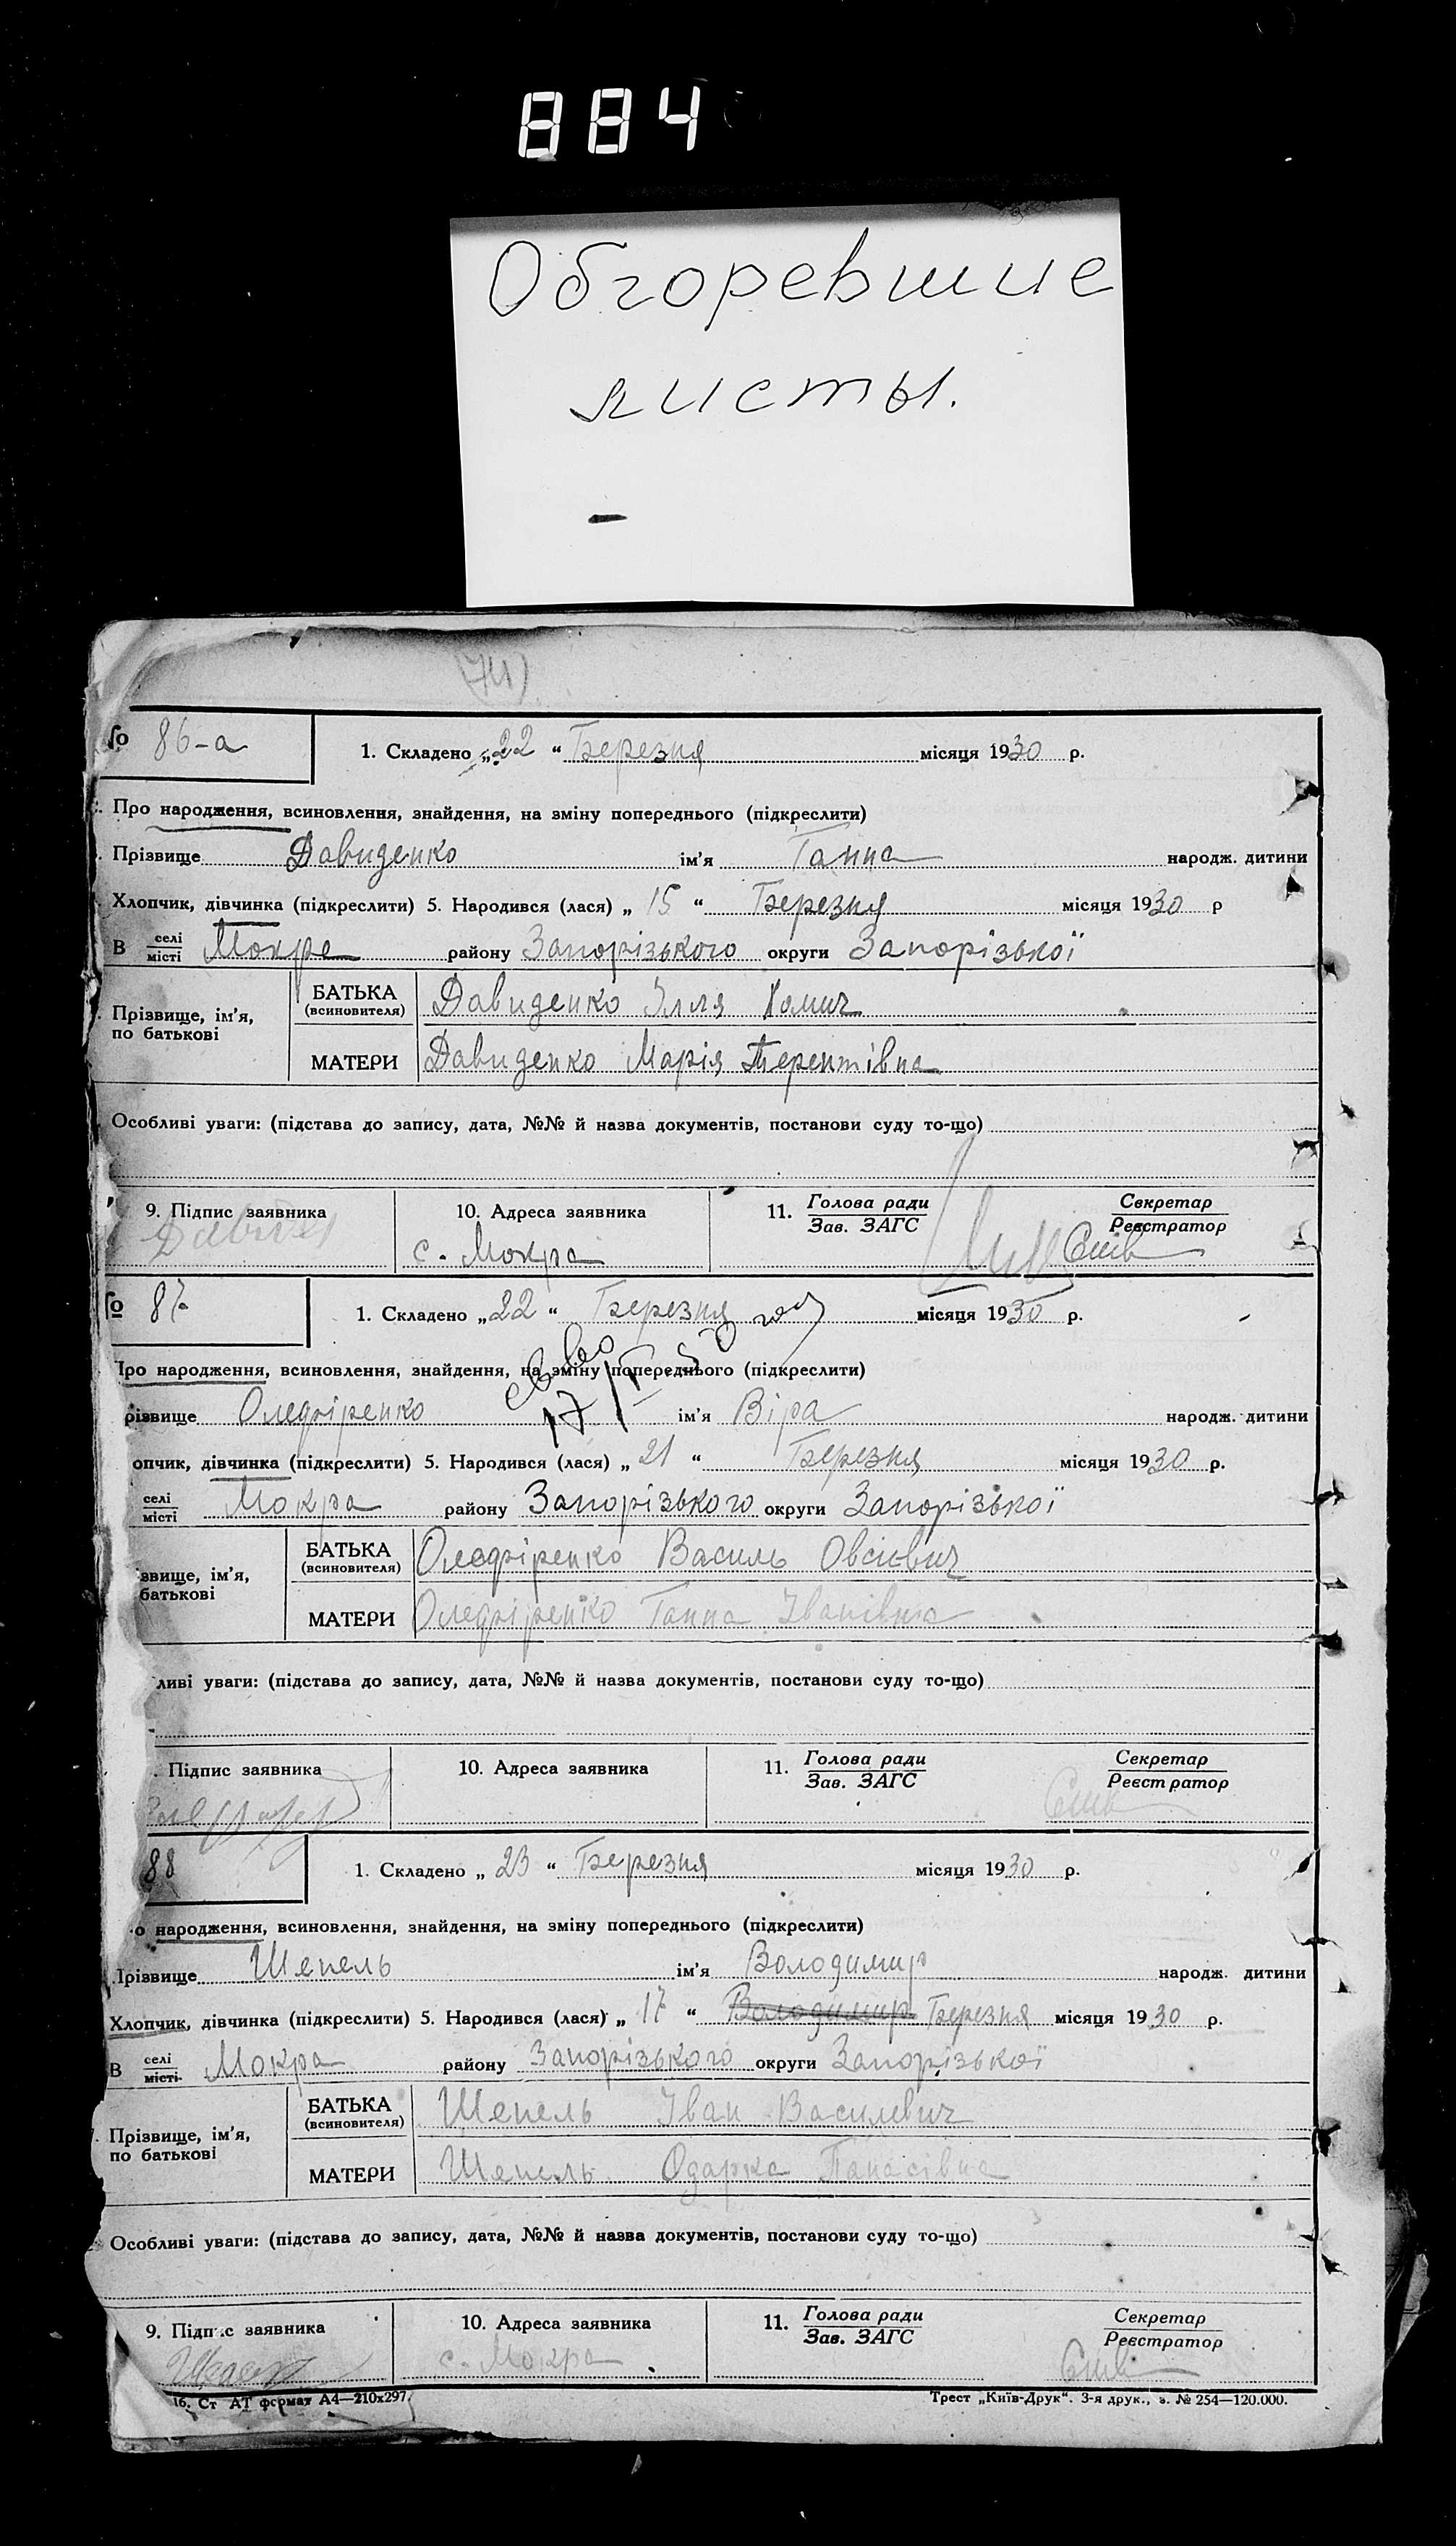 884
Обгоревшие
листы.
(74)
№ 86-а 1. Складено „22“ Березня місяця 1930 р.
Про народження, всиновлення, знайдення, на зміну попереднього (підкреслити)
Прізвище Давиденко ім'я Ганна народж. дитини
Хлопчик, дівчинка (підкреслити) 5. Народився (лася) „15“ Березня місяця 1930 р
В селі/місті Мокре району Запорізького округи Запорізької
Прізвище, ім'я, по батькові
БАТЬКА (всиновителя) Давиденко Ілля Хомич
МАТЕРИ Давиденко Марія Терентівна
Особливі уваги: (підстава до запису, дата, №№ й назва документів, постанови суду то-що)
9. Підпис заявника 10. Адреса заявника 11. Голова ради/Зав. ЗАГС Секретар/Реєстратор
с. Мокра
№ 87 1. Складено „22“ Березня місяця 1930 р.
Про народження, всиновлення, знайдення, на зміну попереднього (підкреслити)
різвище Олефіренко ім'я Віра народж. дитини
опчик, дівчинка (підкреслити) 5. Народився (лася) „21“ Березня місяця 1930 р.
селі/місті Мокра району Запорізького округи Запорізької
звище, ім'я, батькові
БАТЬКА (всиновителя) Олефіренко Василь Овсієвич
МАТЕРИ Олефіренко Ганна Іванівна
ливі уваги: (підстава до запису, дата, №№ й назва документів, постанови суду то-що)
. Підпис заявника 10. Адреса заявника 11. Голова ради/Зав. ЗАГС Секретар/Реєстратор
88 1. Складено „23“ Березня місяця 1930 р.
о народження, всиновлення, знайдення, на зміну попереднього (підкреслити)
Прізвище Шепель ім'я Володимир народж. дитини
Хлопчик, дівчинка (підкреслити) 5. Народився (лася) „17“ Володимир Березня місяця 1930 р.
В селі/місті Мокра району Запорізького округи Запорізької
Прізвище, ім'я, по батькові
БАТЬКА (всиновителя) Шепель Іван Василевич
МАТЕРИ Шепель Одарка Панасівна
Особливі уваги: (підстава до запису, дата, №№ й назва документів, постанови суду то-що)
9. Підпис заявника 10. Адреса заявника 11. Голова ради/Зав. ЗАГС Секретар/Реєстратор
с. Мокра
16. Ст АТ формат А4—210х297. Трест „Київ-Друк“. 3-я друк., з. № 254—120.000.